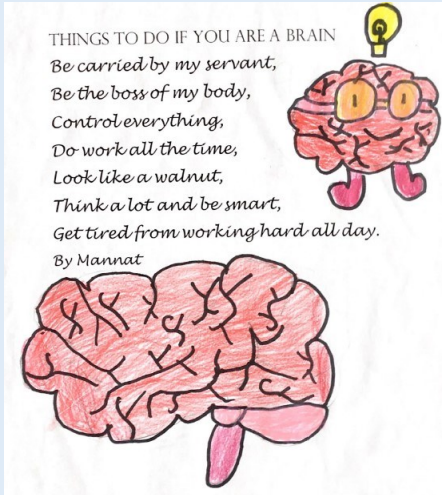 THINGS TO DO IF YOU ARE A BRAIN
Be carried by my servant,
Be the boss of my body,
Control everything,
Do work all the time,
Look like a walnut,
Think a lot and be smart,
Get tired from working hard all day.
By Mannat